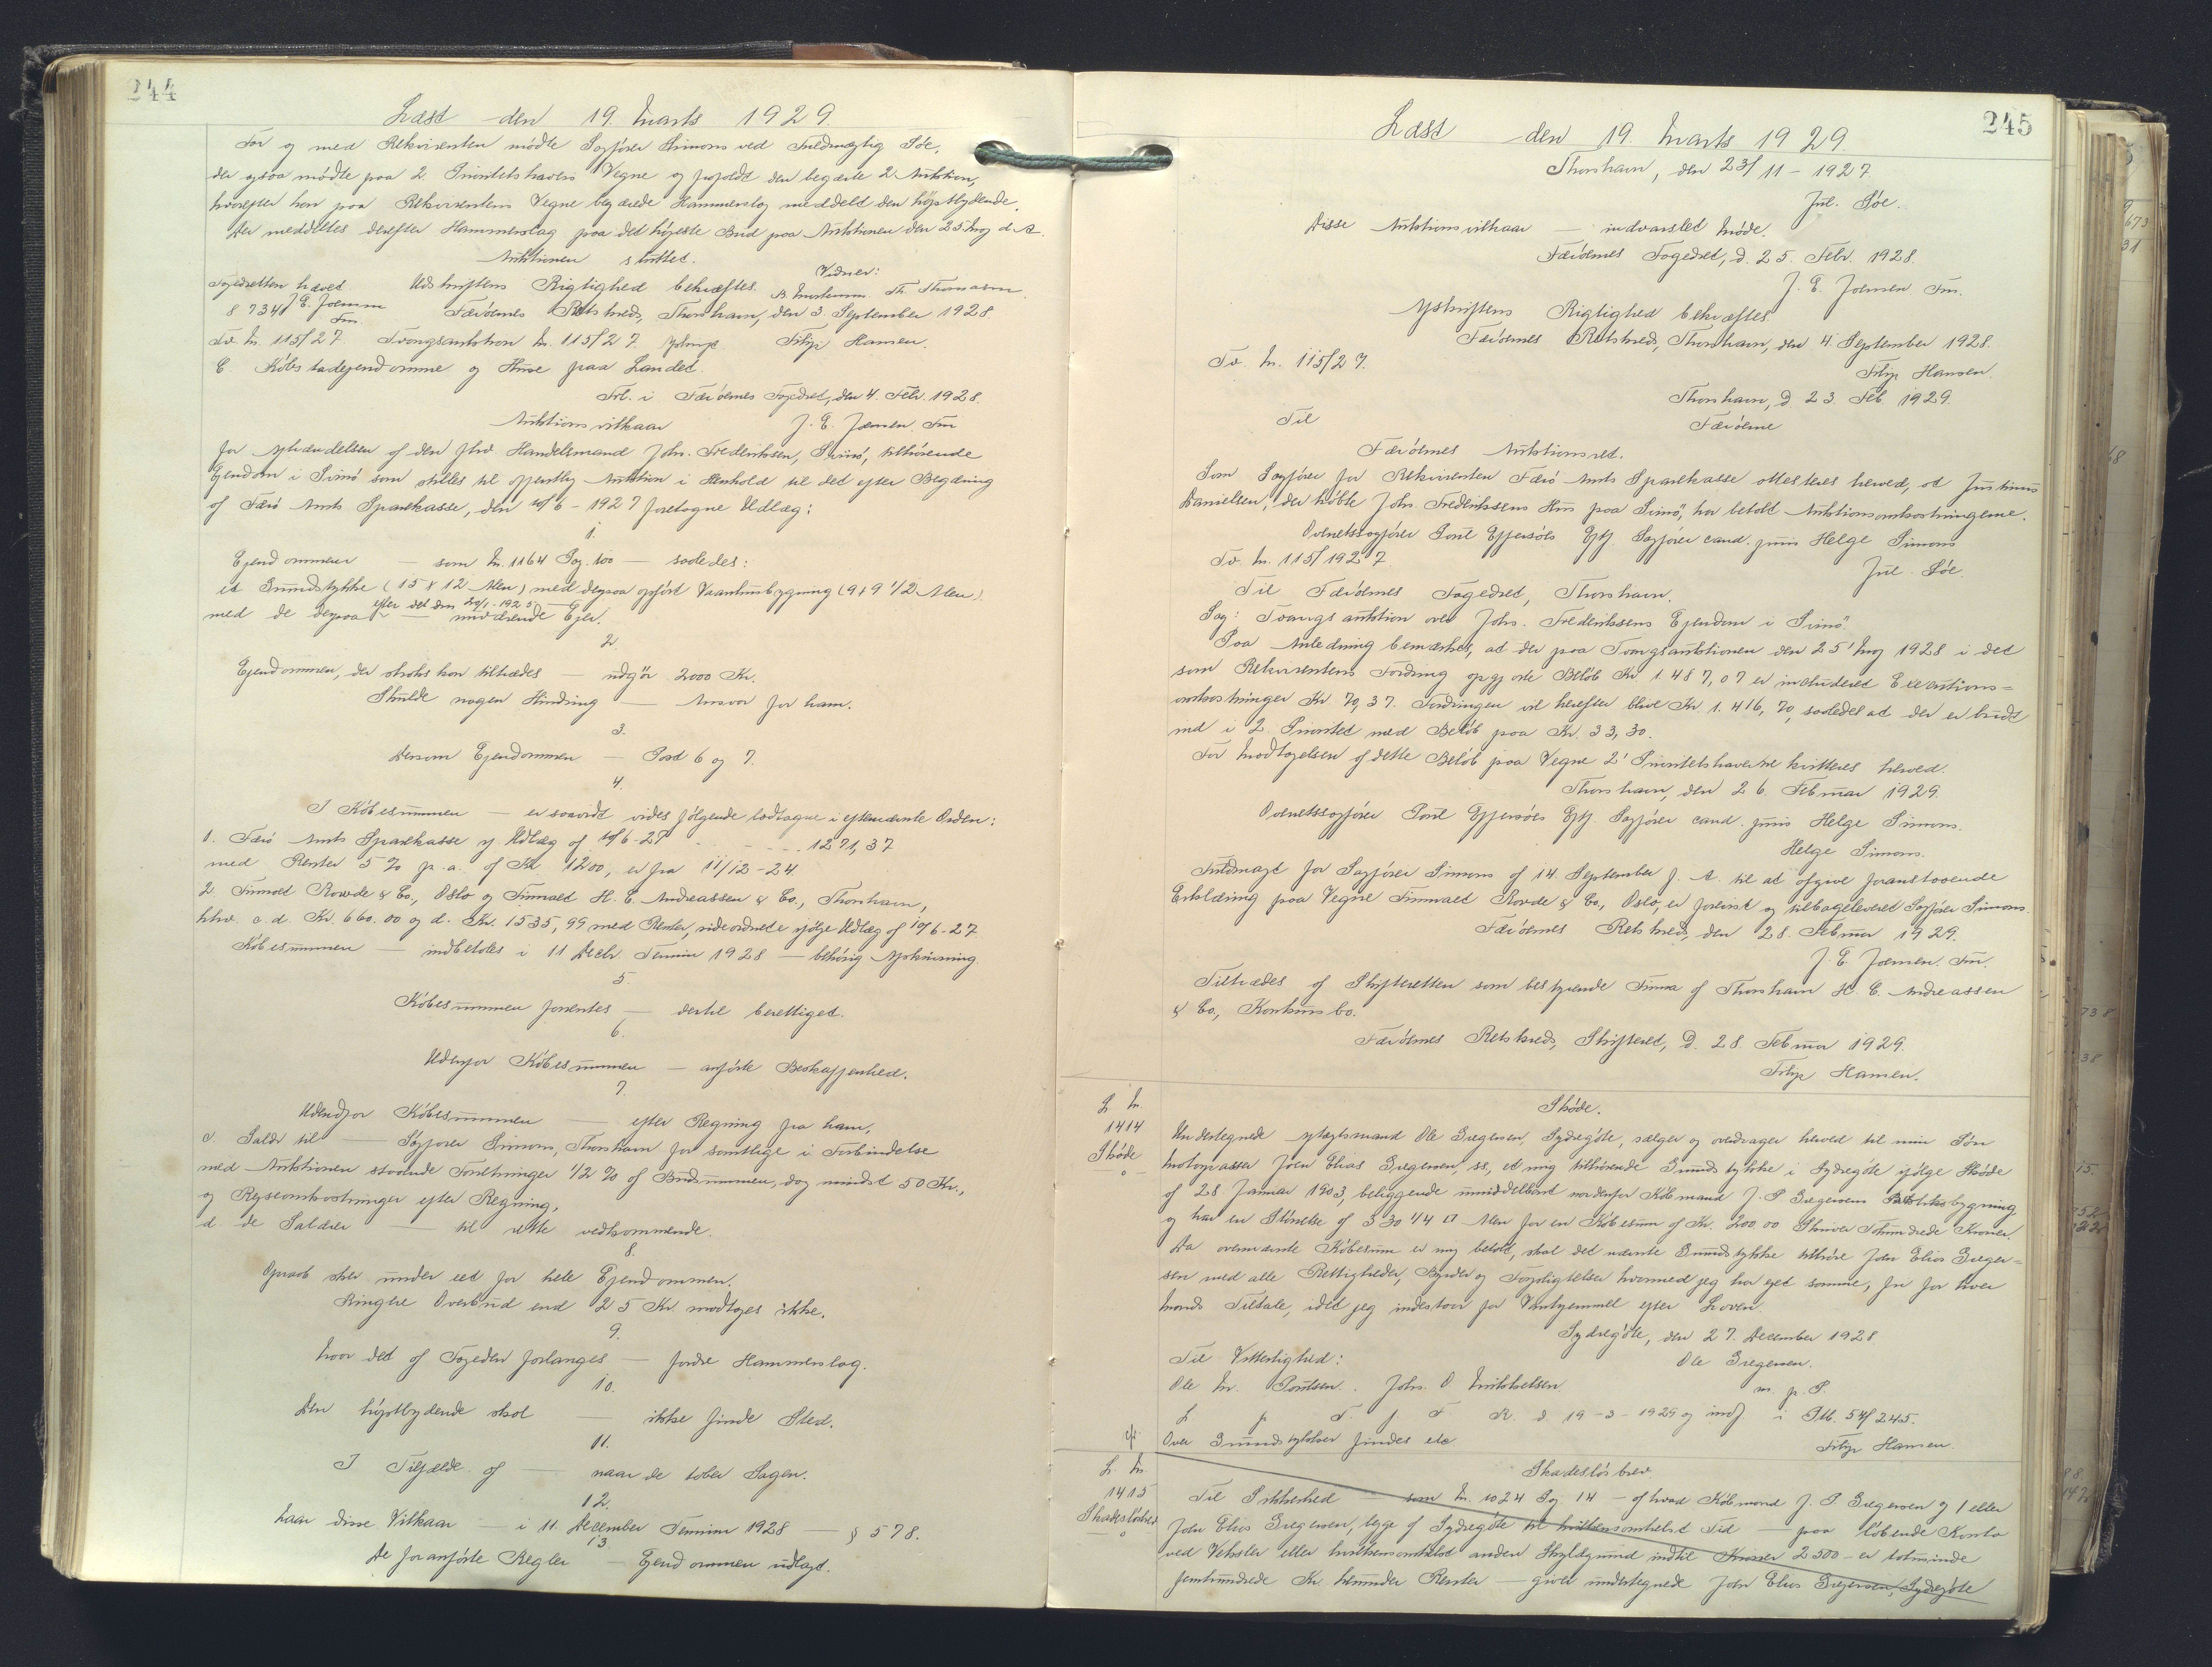 244
Læst den 19. Marts 1929.
For og med Rekvirenten mødte Sagfører Simons ved Fuldmægtig Søe,
der ogsaa mødte paa 2 Prioritetshavers Vegne og frafaldt den begærte 2 Auktion,
hvorefter han paa Rekvirentens Vegne begærede Hammerslag meddelt den højstbydende.
Der meddeltes derefter Hammerslag paa det højeste Bud paa Auktionen den 25 Aug d. A.
Auktionen sluttet.
Fogedretten hævet. Udskriftens Rigtighed bekræftes. Vidner:
J. E. Joensen Fm. Th. Thomasen
§ 734 Færöernes Retskreds, Thorshavn, den 3. September 1928.
Tv. Nr. 115/27. Tvangsauktion Nr. 115/27. Filip Hansen.
C. Købstadejendomme og Huse paa Landet.
Frl. i Færöernes Fogedret, den 4. Febr. 1928.
Auktionsvilkaar J. E. Joensen. Fm
for Afhændelsen af den fhv. Handelsmand Johs. Frederiksen, Svinö, tilhörende
Ejendom i Svinö som stilles til offentlig Auktion i Henhold til det efter Begæring
af Færö Amts Sparekasse, den 10/6 - 1927 foretagne Udlæg:
1.
Ejendommen — som Nr. 1164 Pag. 100 — saaledes:
et Grundstykke (15 x 12 Alen) med derpaa opført Vaaningsbygning (9 x 9 1/2 Alen)
med de derpaa — nuværende Ejer.
2.
Ejendommen, der straks kan tiltrædes — udgör 2000 Kr.
Skulde nogen Hindring — Ansvar for ham.
3.
Dersom Ejendommen — Post 6 og 7.
4.
I Købesummen — er saavidt vides følgende lodtagne i efternævnte Orden:
1. Færö Amts Sparekasse if Udlæg af 10/6-27 - - - - 1271,37
med Renter 5 % p. a. af Kr. 1200, er fra 11/12 - 24.
2 Firmaet Rowde & Co., Oslo og Firmaet H. C. Andreassen & Co., Thorshavn,
hhv. a. d. Kr. 660.00 og d. Kr. 1535,99 med Renter, sideordnede ifølge Udlæg af 10/6-27.
Købesummen — indbetales i 11 Decbr. Termin 1928 — behörig Afskrivning
5.
Købesummen forrentes — dertil berettiget.
6.
Udenfor Købesummen — anførte Beskaffenhed.
7.
Udenfor Købesummen — efter Regning fra ham,
c. Salær til — Sagfører Simons, Thorshavn for samtlige i Forbindelse
med Auktionen staaende Forretninger 1/2 % af Budsummen, dog mindst 50 Kr.,
og Rejseomkostninger efter Regning,
d. de Salærer — til rette vedkommende.
8.
Opraab sker under eet for hele Ejendommen.
Ringere Overbud end 25 Kr. modtages ikke.
9.
hvor det af Fogeden forlanges — fordre Hammerslag.
10.
Den højstbydende skal — ikke finde Sted.
11.
I Tilfælde af — naar de taber Sagen.
12.
Naar disse Vilkaar — i 11. December Termin 1928 — § 578.
13.
De foranførte Regler — Ejendommen udlagt.
245
Læst den 19. Marts 1929.
Thorshavn, den 23/11 - 1927
Jul. Söe.
Disse Auktionsvilkaar — indvarslet Møde.
Færöernes Fogedret, d. 25. Febr. 1928.
J. E. Joensen Fm.
Afskriftens Rigtighed bekræftes.
Færöernes Retskreds, Thorshavn, den 4. September 1928.
Tv. Nr. 115/27. Filip Hansen.
Thorshavn, d 23. Feb. 1929.
Til Færöerne
Færöernes Auktionsret.
Som Sagfører for Rekvirenten Færö Amts Sparekasse attesteres herved, at Justinus
Danielsen, der købte Johs. Frederiksens Hus paa Svinö, har betalt Auktionsomkostningerne.
Overretssagfører Poul Effersöes Eftf. Sagfører cand. juris Helge Simons
Tv. Nr. 115/1927. Jul. Söe
Til Færöernes Fogedret, Thorshavn.
Sag: Tvangsauktion over Johs. Frederiksens Ejendom i Svinö.
Paa Anledning bemærkes, at der paa Tvangsauktionen den 25' Aug 1928 i det
som Rekvirentens Fordring opgjorte Beløb Kr. 1.487,07 er inkluderet Executions-
omkostninger Kr. 70,37. Fordringen vil herefter blive Kr. 1.416,70, saaledes at der er budt
ind i 2. Prioritet med Beløb paa Kr. 33,30.
For Modtagelsen af dette Beløb paa Vegne 2' Prioritetshaverne kvitteres herved.
Thorshavn, den 26. Februar 1929.
Overretssagfører Poul Effersöes Eftf. Sagfører cand. juris Helge Simons.
Helge Simons.
Fuldmagt for Sagfører Simons af 14. September f. A. til at afgive foranstaaende
Erklæring paa Vegne Firmaet Rowde & Co., Oslo, er forevist og tilbageleveret Sagfører Simons.
Færöernes Retskreds, den 28. Februar 1929.
J. E. Joensen. Fm.
Tiltrædes af Skifteretten som bestyrende Firma af Thorshavn H. C. Andreassen
& Co., Konkursbo.
Færöernes Retskreds, Skifteret, D. 28. Februar 1929.
Filip Hansen.
L. Nr.
1414
Skøde
Skøde.
Undertegnede Aftægtsmand Ole Gregersen, Sydregöte, sælger og overdrager herved til min Søn
Motorpasser Joen Elias Gregersen, ss., et mig tilhörende Grundstykke i Sydregöte ifölge Skøde
af 28 Januar 1903, beliggende umiddelbart nordenfor Købmand J. P. Gregersens bygning
og har en Størrelse af 330 1/4 □ Alen for en Købesum af Kr. 200,00 Skriver Tohundrede Kroner.
Da ovennævnte Købesum er mig betalt, skal det nævnte Grundstykke tilhøre Joen Elias Greger-
sen med alle Rettigheder, Byrder og Forpligtelser hvormed jeg har ejet samme, fri for hver
Mands Tiltale, idet jeg indestaar for Vanhjemmel efter Loven.
Sydregöte, den 27. December 1928
Til Vitterlighed: Ole Gregersen.
Ole M. Poulsen. Johs. O. Mikkelsen. m. p. P.
L p T f F R. d. 19-3-1929 og indf i Ptb. 54/245.
Over Grundstykket findes ete Filip Hansen.
L. Nr.
1415
Skadesløsbrev
Skadesløsbrev.
Til Sikkerhed — som Nr. 1024 Pag 14 — af hvad Købmand J. P. Gregersen og / eller
Joen Elias Gregersen, begge af Sydregöte til hvilkensomhelst Tid — paa løbende Konto
ved Veksler eller hvilkensomhelst anden Skyldgrund indtil Kroner 2500 - er totusinde
femhundrede Kr. herunder Renter — giver undertegnede Joen Elias Gregersen, Sydregöte